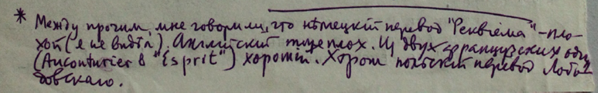 * Между прочим, мне говорили, что нѣмецкiй перевод "Реквіема" – пло-
хой (я не видѣл). Английский тоже плох. Из двух французских один
(Aucouturier в "Esprit") хороший. Хорош польский перевод Лобо-
довскаго.